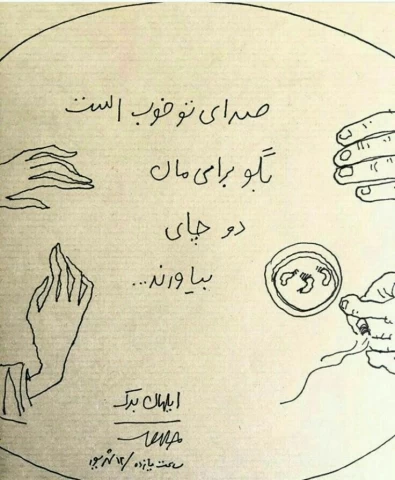 صدای تو خوب است
بگو برای مان
دو چای
بیاورند...
ایلهان برک
ساعت یازده / ۱۲ شهریور